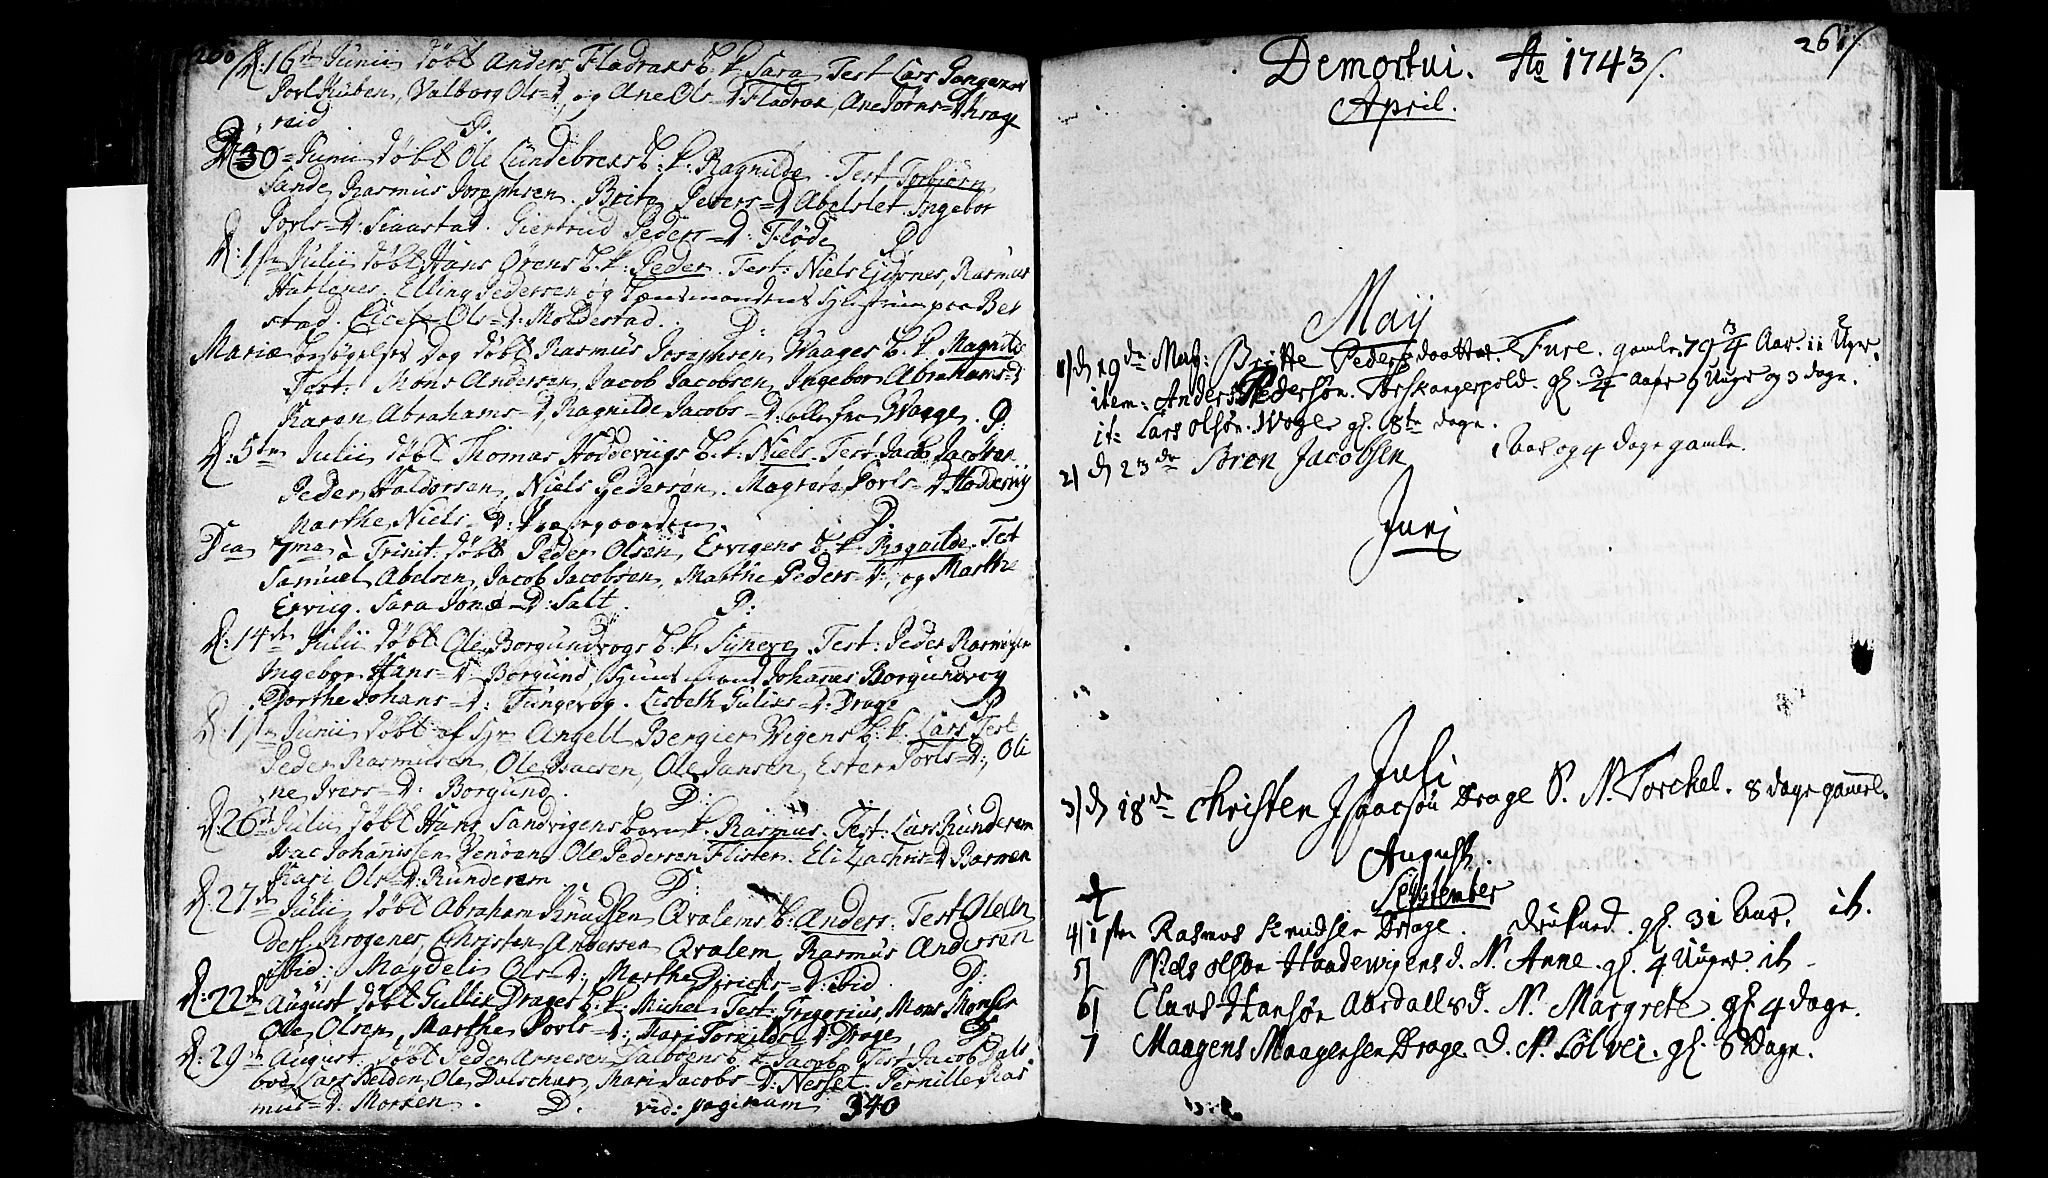 260/
D: 16de Junii døbt Anders Fladraks b: k: Sara Test Lars Gangenes
Povl Kuben, Valborg Ols=D, og Ane Ols=D Fladrak, Ane Jørns=D Krage
reid. P.
D: 30=Junii døbt Ole Lundebreks b: k: Ragnilde. Test Torbiørn
Sande, Rasmus Josephsen. Brite Peders=D Abelslet. Ingebor
Povls=D: Sciaastad. Giertrud Peders=D: Fløde P.
D: 1ste Julii døbt Hans Ørens b. k: Peder. Test: Niels Rasmus
Hatlenes, Elling Pedersen og Lænsmandens Hustrue paa Ber
stad. Cicele Ols=D: Moldestad. P:
Mariæ besøgelses Dag døbt Rasmus Josephsen Waages b. k. Magnilde
Test: Mons Andersen, Jacob Jacobsen, Ingebor Abrahams=D
Karen Abrahams=D, Ragnilde Jacobs=D: alle fra Waage. P:
D: 5te Julii døbt Thomas Hoddevigs b. k: Niels. Test: Jacob Jacobsen
Peder Haldorsen, Niels Pedersen. Magrete Povls=D Hoddevig
Marthe Niels=D: Præstegaarden. P.
Dca 7ma à Trinit: døbt Peder Olsen Ervigens b. k: Ragnilde. Test
Samuel Abelsen, Jacob Jacobsen, Marthe Peders=D:, og Marthe
Ervicg. Sara Jons=D: Salt. P:
D: 14de Julii døbt Ole Borgundvogs b. k: Synneve. Test: Peder Rasmusen
Ingebor Hans=D Borgund, Johannes Borgundvog
Dorthe Johans=D: Tungevog. Lisbeth Gulichs=D: Drage P
D: 1ste Junii døbt af Hr Angell Bergier Wigens b: k: Lars Test
Peder Rasmusen, Ole Isacsen, Ole Jansen, Ester Povls=D:, Oli
ne Ivers=D: Borgund. P:
D: 26de Julii døbt Hans Sandvigens barn k: Rasmus. Test: Lars Runderem
Isac Johannissen Venøen, Ole Pedersen Flister. Eli Zachris=D Barmen
Kari Ols=D: Runderem P:
D: 27de Julii døbt Abraham Knudsen Qvalems b: Anders. Test Ole An
ders. Krogenes, Christen Andersen Qvalem, Rasmus Andersen
ibid; Maydeli Ols=D:, Marthe Dirichs=D: ibid P:
D: 22de August døbt Gullic Drages b. k: Michel. Test: Gregorius, Mons Monsen
Ole Olsen, Marthe Povls=D:, Mari Tornils=D Drage P:
D: 29de August døbt Peder Arnesen Dalboens b. k. Jacob Test: Jacob Dals
boe Lars Helden, Ole Dalschar, Mari Jacobs=D: Nerset. Pernille Ras
mus=D: Morken. P. vid: paginam 340
261/
Demortui. Ao 1743/.
April.
Maij
1) d 19de Maij: Britte Pedersdaatter. Fure. gamle 79 3/4 Aar. 11 Uger.
item: Anders Pedersøn. gl. 3/4 Aar 9 Uuger og 3 dage.
it: Lars Olsøn. Woge gl. 8te dage.
2) d 23de Sören Jacobsen 1 Aar og 4 dage gamle.
Junj
Juli
3) d 18de Christen Isaacsøn Drage S. N. Torckel. 8 dage gammel.
Augusti.
September
4) 1ste Rasmus Knudsen Drage. druknd. gl. 31 Aar. it.
5) Niels Olsøn Haadewigens d. N. Anne. gl. 4 Uuger. it
6) Claus Hansøn Aardalls d. N. Margrete. gl. 4 dage.
7 Maagens Maagensen Drage. d. N. Sölvei. gl. 6 dage.